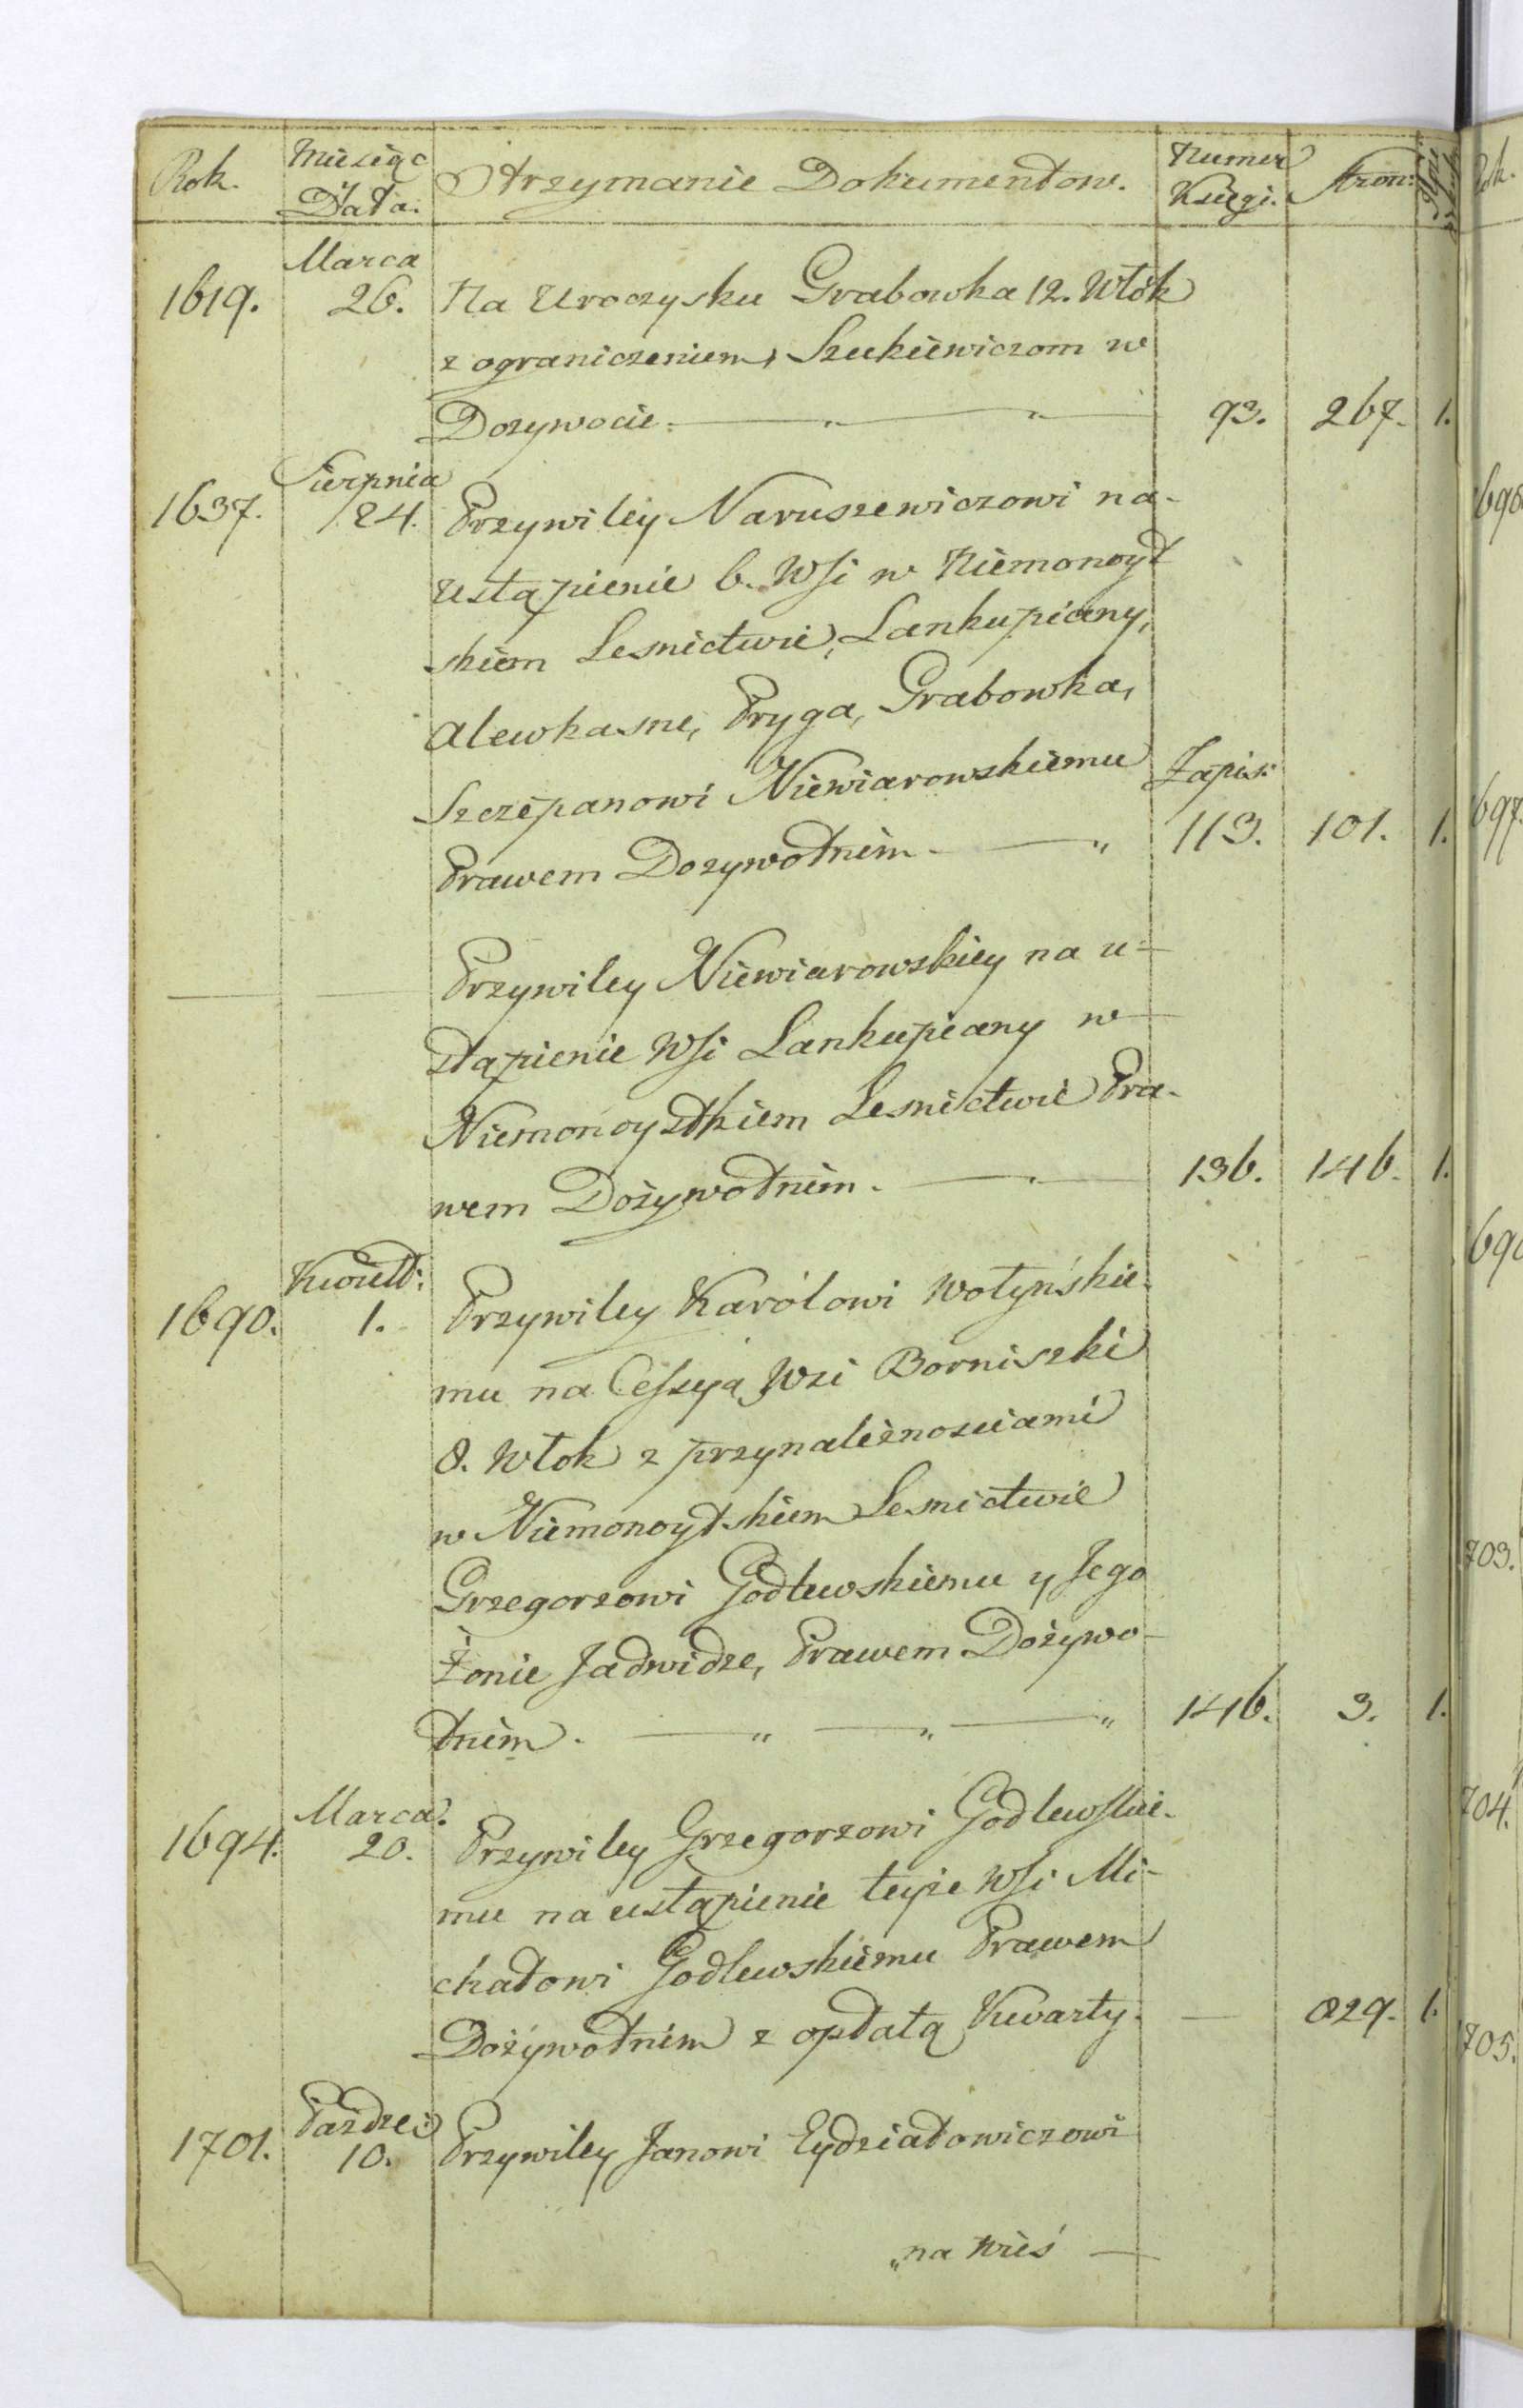 Rok. Miesiąc Otrzymanie Dokumentow. Numer Stron:
Data. Księgi.
Marca
1619. 26. Na Uroczysku Grabowka 12. Włók
z ograniczeniem, Szukiewiczom w
Dozywocie. 93. 267. 1.
Sierpnia
1637. 24. Przywiley Naruszewiczowi na-
ustąpienie 6. Wsi w Niemonoyt
skiem Lesnictwie, Lankupiany,
Alewkasne, Pryga, Grabowka,
Szczepanowi Niewiarowskiemu Zapis:
Prawem Dozywotnim. 113. 101. 1.
Przywiley Niewiarowskiey na u-
stąpienie Wsi Lankupiany w
Niemonoyttkiem Lesnictwie Pra-
wem Dożywotnim. 136. 146. 1.
Kwiet:
1690. 1. Przywiley Karólowi Wołyńskie-
mu na Cessyą Wzi Borniszki
8. Włok z przynależnosciami
w Niemonoytskiem Lesnictwie
Grzegorzowi Godlewskiemu y Jego
Żonie Jadwidze, Prawem Dożywo-
tnim. 146. 3. 1.
Marca.
1694. 20. Przywiley Grzegorzowi Godlewskie-
mu na ustąpienie teyże Wsi Mi-
chałowi Godlewskiemu Prawem
Dożywotnim z opłatą Kwarty. 829. 1.
Pazdze:
1701. 10. Przywiley Janowi Eydziatowiczowi
„na Wieś